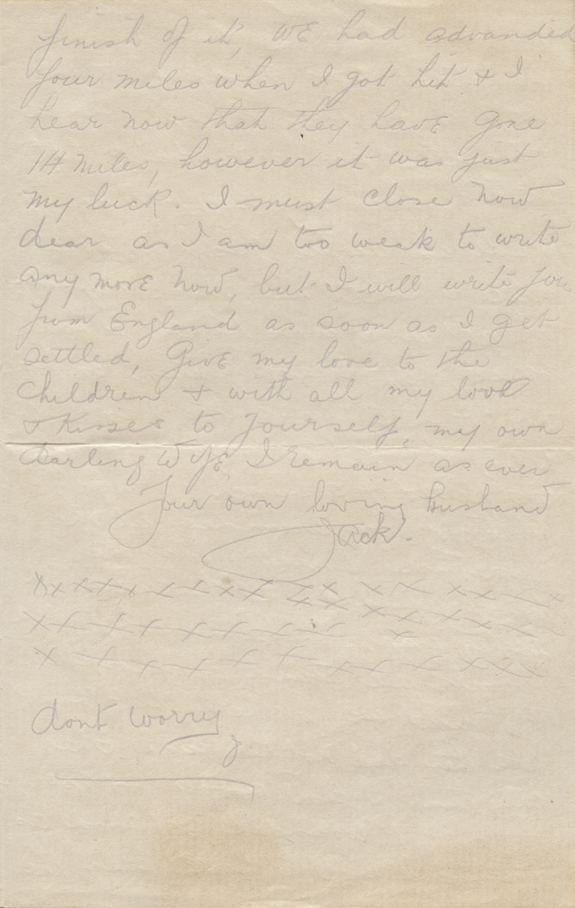 finish of it, WE had advanded
four miles when I got hit & I
hear now that they havE gone
14 miles, however it was just
my luck. I must close now
dear as I am too weak to write
any morE now, but I will write you
from England as soon as I get
settled, GivE my love to the
Children & with all my love
& Kisses to yourself, my own
darling WifE, I remain as ever
Your own loving husband
Jack.
Xxxxxxxxxxx xx xx x
xxxxxxxxxxxxxxx
xxxxxxxxxxxxxx
dont worry